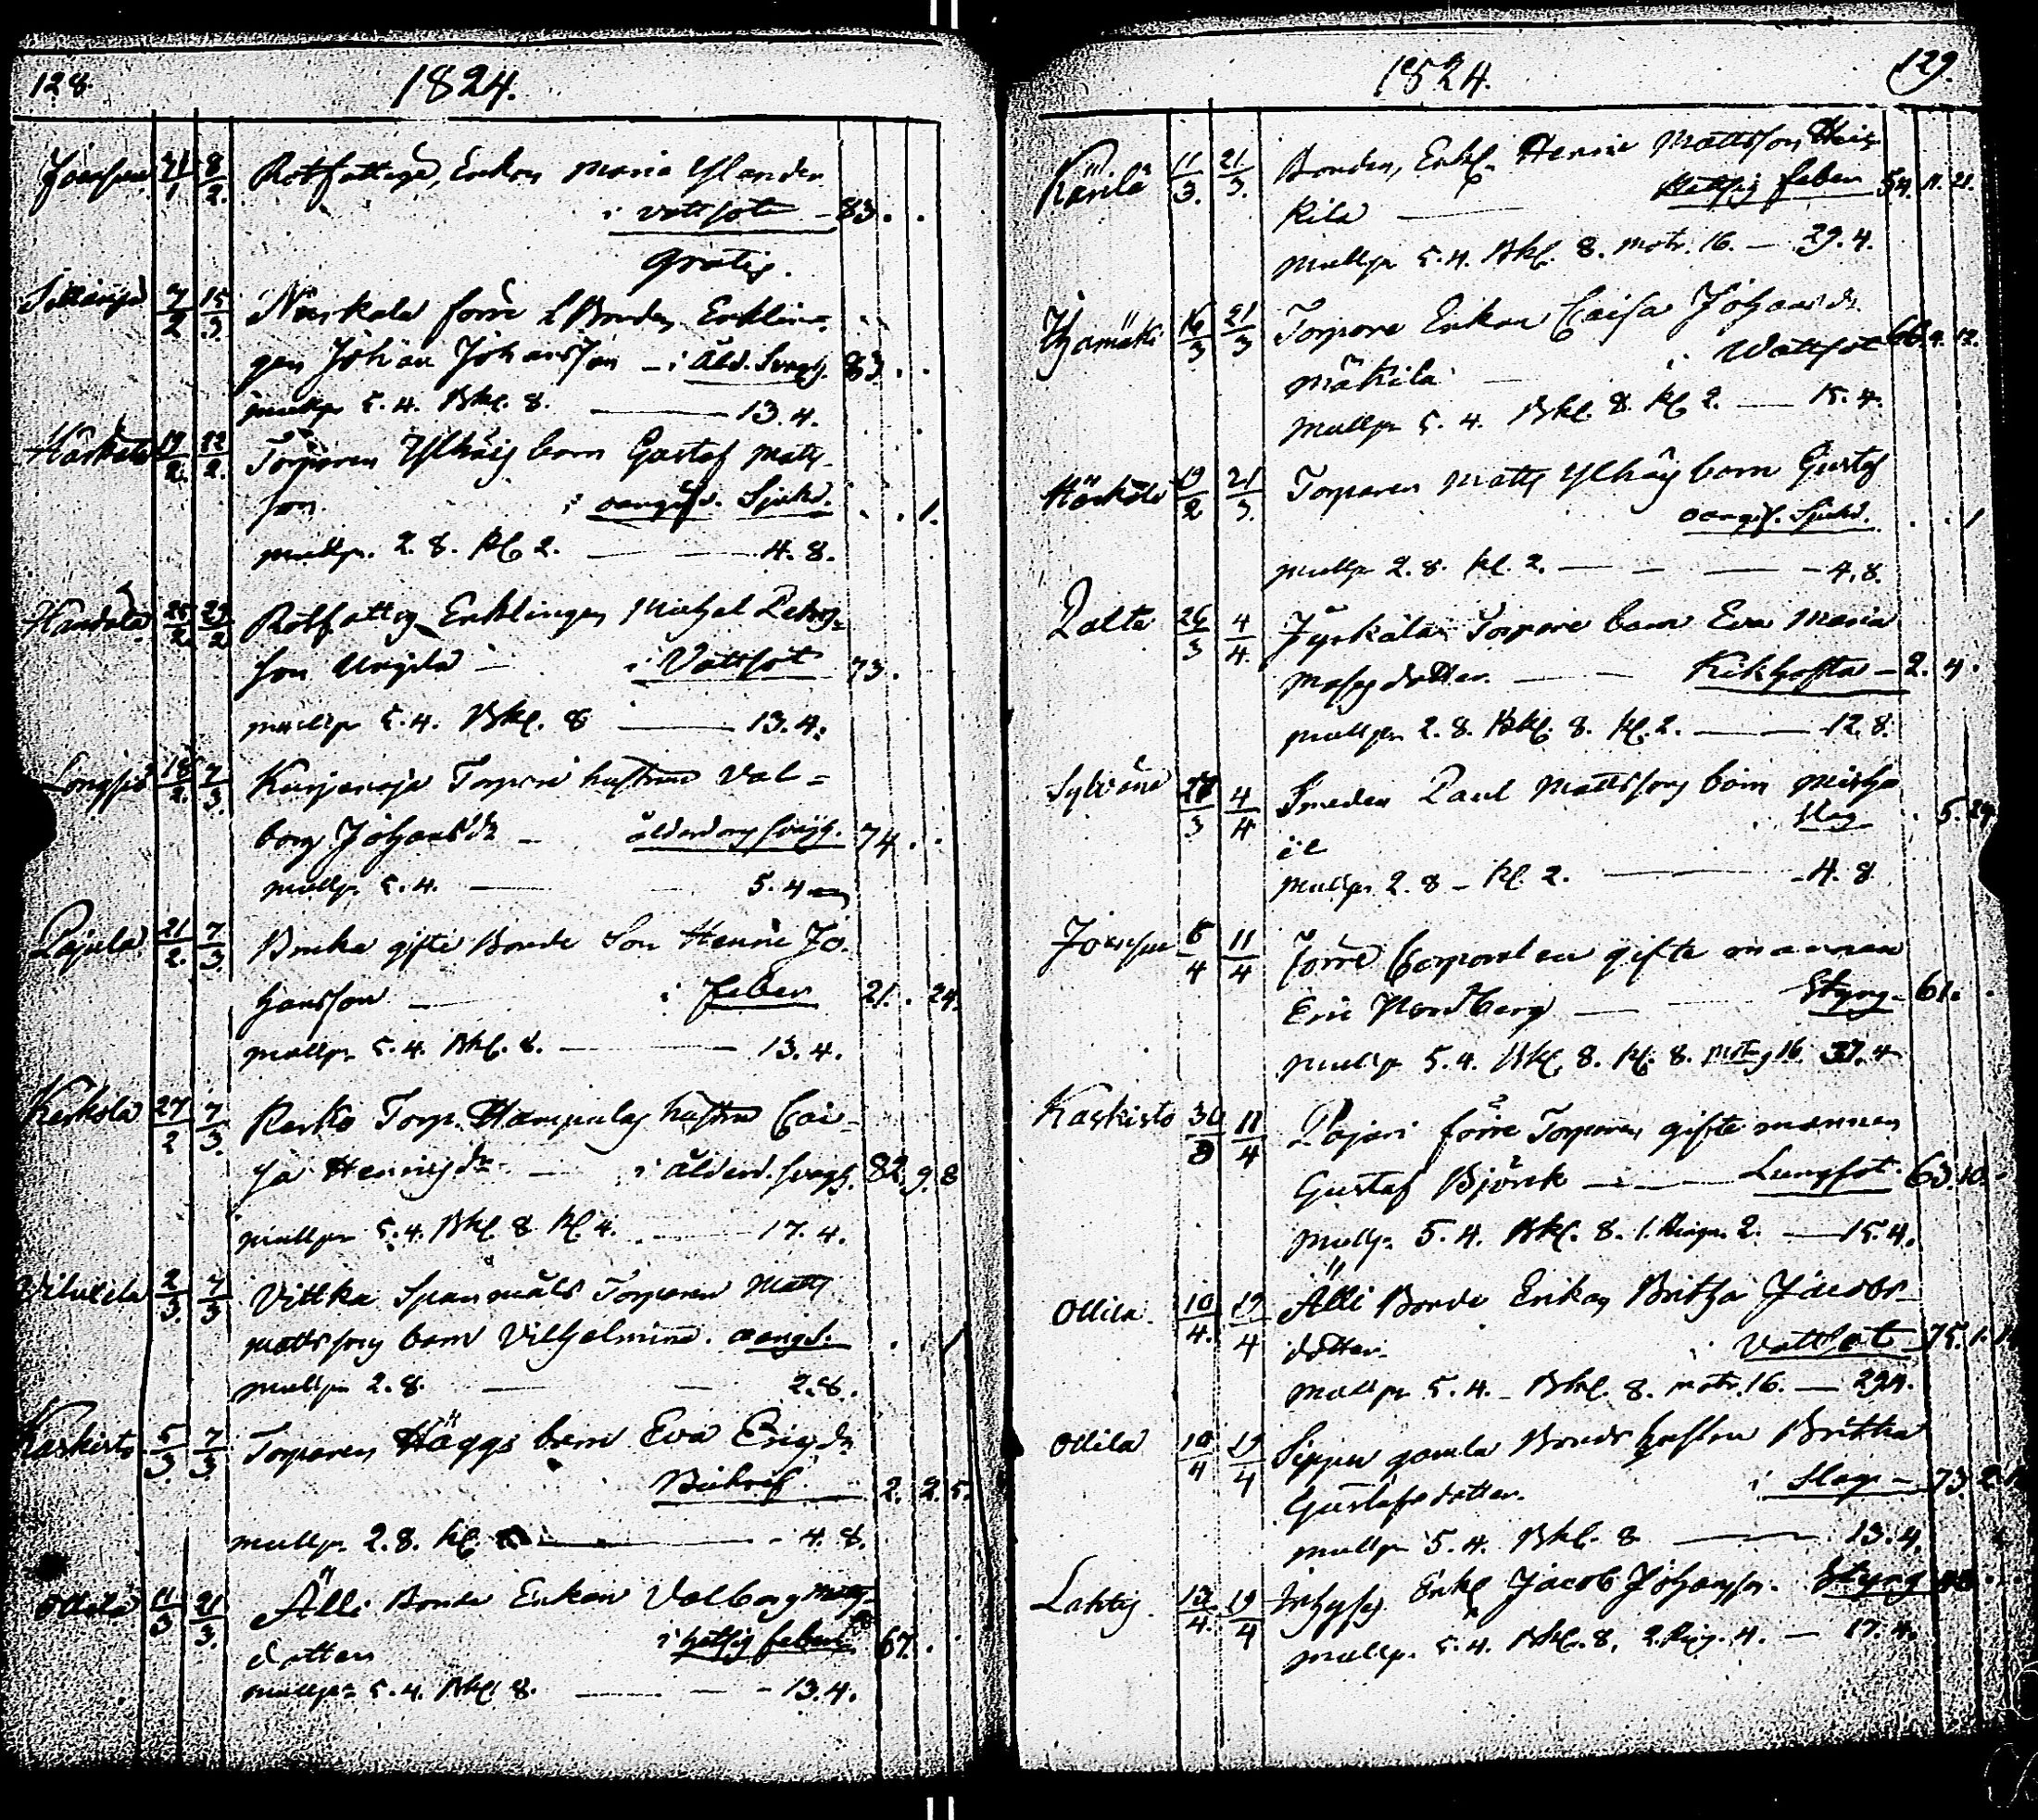 128. 1824.
Joensuu 31/1 8/2. Rotfattige, Enkan Maria Ylander
i vattsot - 83. .
Gratis.
7/2 15/3. Narkala förre Bonden Enklin-
gen Johan Johansson - i Åld. Svagh. 83. .
mullp. 5.4. Bkl. 8. — 13.4.
Härkälä 19/2. 22/2. Torparen Ylhäis barn Gustaf Matts
son i oangifv. Sjukd. . . 1.
mullp. 2.8. Kl. 2. — 4.8.
Handela 25/2 29/2 Rotfattig Enklingen Michel
son i Vattsot 73.
mullp 5.4. Bkl. 8 — 13.4.
Longsjö 18/2. 7/3. Kurjenoja Torpare hustrun Val=
borg Johansdr - ålderdomssvagh. 74. .
mullp. 5.4. — 5.4
Pajula 21/2. 7/3. gifte Bonde Son Henric Jo-
hansson — i feber 21. . 24.
mullp. 5.4. Bkl. 8. — 13.4.
Kerkola 27/2 7/3. Torp. hustru Cai-
sa Henricsdr. — i ålderd. svagh. 82. 9. 8
mullp. 5.4. Bkl. 8 Kl. 4. — 17.4.
2/3. 7/3 Vittka Torparen Matts
Mattssons barn Vilhelmina. oangif. . . 1
mullp. 2.8. — 2.8.
Kaskisto 5/3. 7/3 Torparen Häggs barn Eva Ericsdr
2. 2. 5.
mullp. 2.8. Kl. — 4.8.
Ollila 11/3 21/3. Älli Bonde Enkan Valborg Matts
dotter i hetsig feber 67. .
mullp. 5.4. Bkl. 8. — 13.4.
1824. 129.
Kärilä 11/3. 21/3. Bonden, Enkl. Henric Mattsson Heik
kilä — Hettsig feber 54. 11. 21.
mullp 5.4. Bkl. 8. motr. 16. — 29.4.
16/3 21/3 Torpare Enkan Caisa Johansdr.
Mäkilä — i Wattsot 66. 9. 12.
mullp 5.4. Bkl. 8. Kl. 2. — 15.4.
Härkälä 19/2 21/3. Torparen Matts Ylhäis barn Gustaf
oangif. Sjukd. . . 1
mullp 2.8. Kl. 2. — 4.8.
Palta 26/3 4/4. Torpare barn Eva Maria
dotter. — Kikhosta - 2. 4.
mullp. 2.8. Bkl. 8. Kl. 2. — 12.8.
28/3 4/4 Smeden Paul Mattssons barn Micha
el Slag . 5. 29
mullp. 2.8 - Kl. 2. — 4.8
Joensuu 6/4 11/4 förre Corporalen gifte mannen
Eric Nordberg — Styng - 61. .
mullp 5.4. Bkl. 8. Kl. 8. 16. 37.4
Kaskisto 30/3 11/4 Pajari förre Torparen gifte mannen
Gustaf Björck — Lungsot 63. 10. .
mullp. 5.4. Bkl. 8. 1. Ringn. 2. — 15.4.
Ollila. 10/4. 19/4 Älli Bonde Enkan Britha Jacobs-
dotter. i Vattsot 75. 1.
mullp. 5.4. - Bkl. 8. motr. 16. — 29.4.
Ollila 10/4 19/4 Seppen gamla Bonde hustru Britha
Gustafsdotter. i Slag - 73. 2.
mullp 5.4. Bkl. 8 — 13.4.
Lahtis. 13/4. 19/4 Inhyses Enkl. Jacob Johansson. Styng
mullp. 5.4. Bkl. 8, 2. Ring. 4. — 17.4.